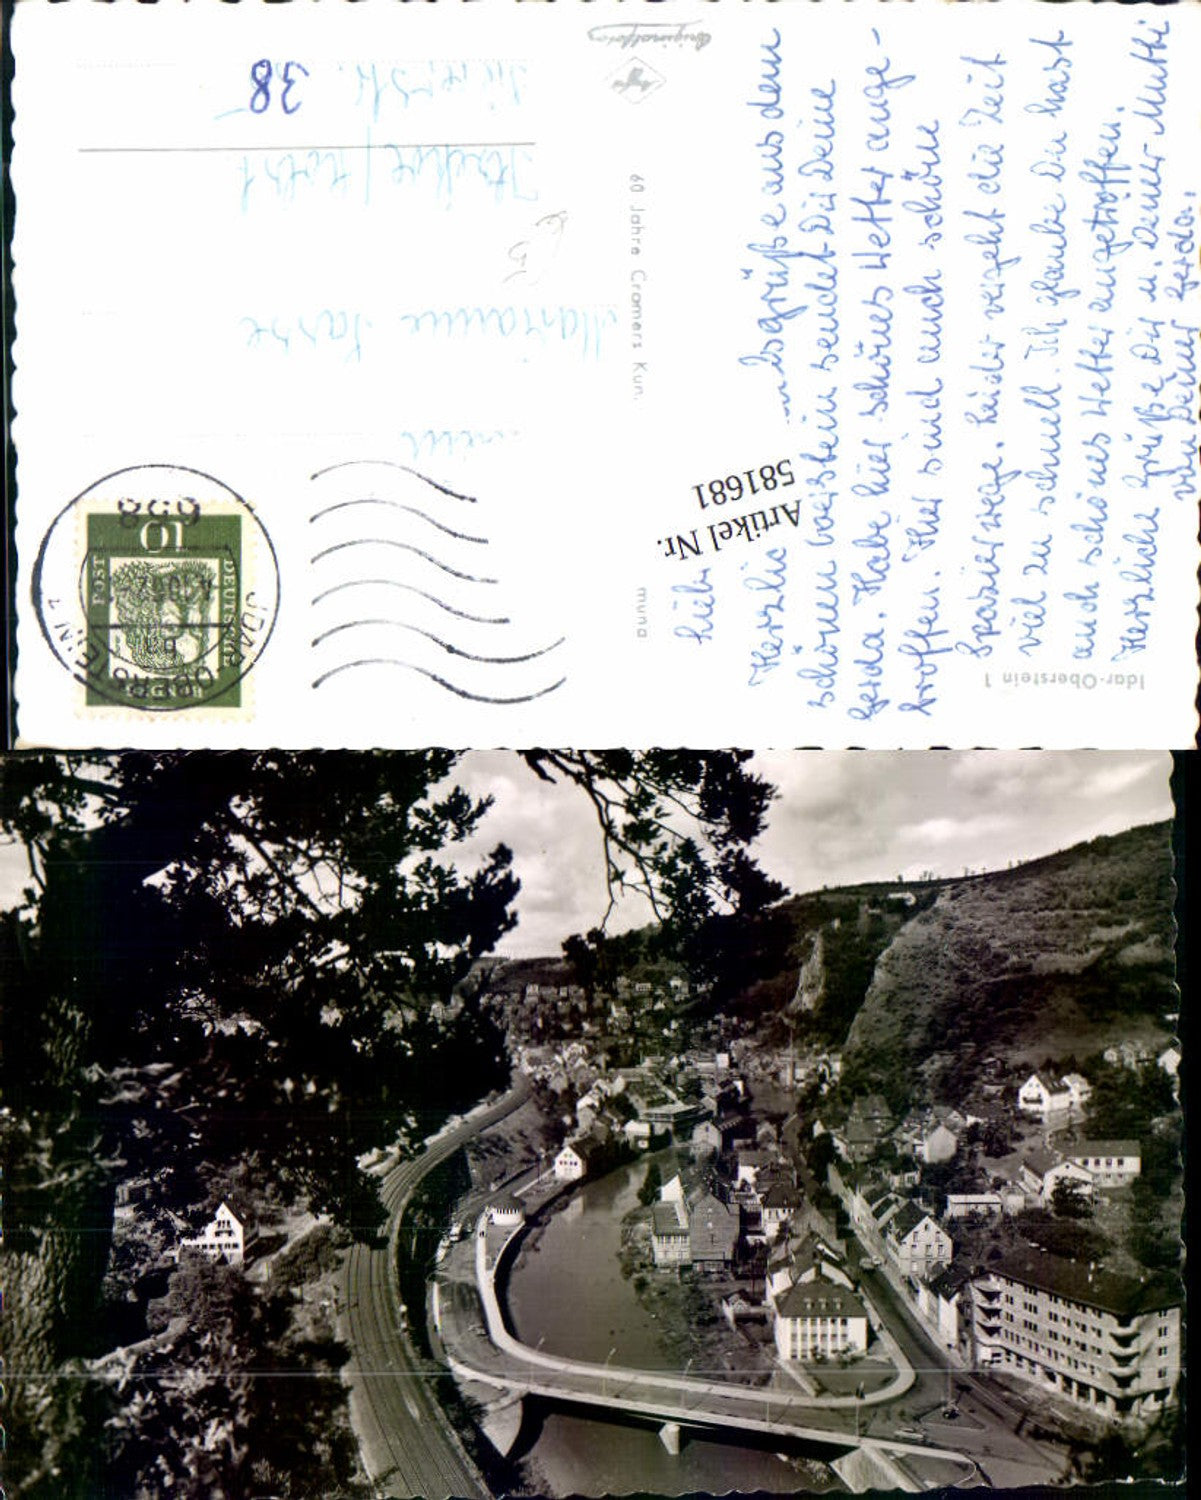 Idar-Oberstein 1
60 Jahre Cramers Kun.
muna
Originalfoto
Agfa
Liebe
Herzlic sgrüße aus dem
schönen Oberstein sendet Dir Deine
Gerda. Habe hier schönes Wetter ange-
troffen. Hier sind auch schöne
Spazierwege. Leider vergeht die Zeit
viel zu schnell. Ich glaube Du hast
auch schönes Wetter angetroffen.
Herzliche Grüße Dir u. Deiner Mutti
von Deiner Gerda.
Artikel Nr.
581681
Marianne
38
658
IDAR-OBERSTEIN 1
10
DEUTSCHE
POST